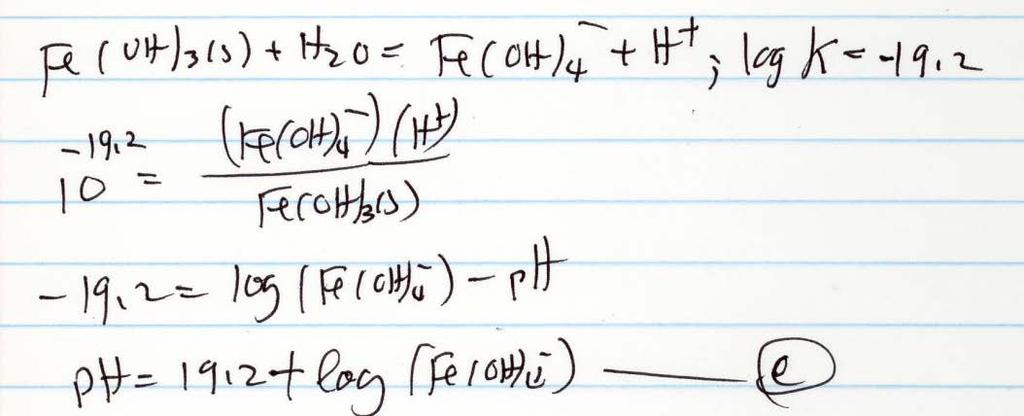 Fe(OH)3(s) + H2O = Fe(OH)4⁻ + H⁺; log K = -19.2
10^-19.2 = (Fe(OH)4⁻)(H⁺) / Fe(OH)3(s)
-19.2 = log (Fe(OH)4⁻) - pH
pH = 19.2 + log (Fe(OH)4⁻) —— e